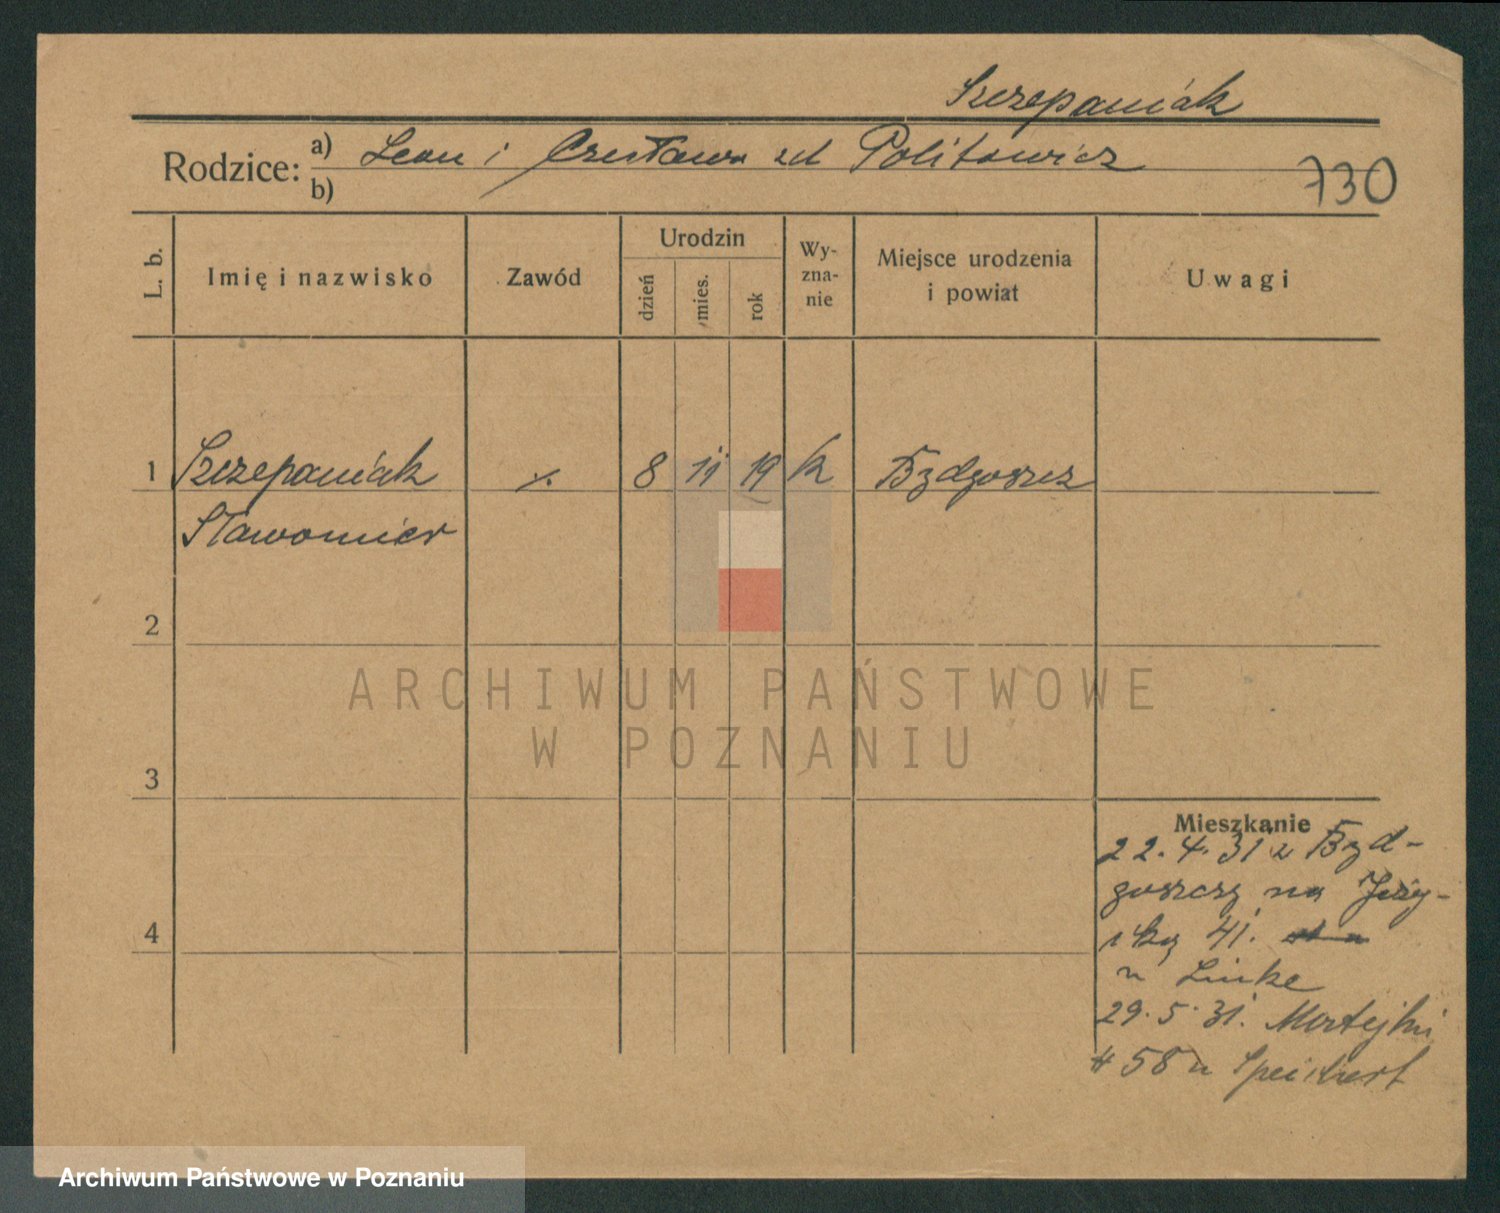 Szczepaniak
Rodzice: a) Leon i Czesława zd Politowicz
b)
730
L. b.
Imię i nazwisko
Zawód
Urodzin
dzień
mies.
rok
Wy-
zna-
nie
Miejsce urodzenia
i powiat
Uwagi
1 Szczepaniak ٪ 8 11 19 k Bydgoszcz
Sławomier
2
ARCHIWUM PAŃSTWOWE
W POZNANIU
3
Mieszkanie
22.4.31 z Byd-
goszczy na
4
41.
u Linke
29.5.31.
58 u Speichert
Archiwum Państwowe w Poznaniu